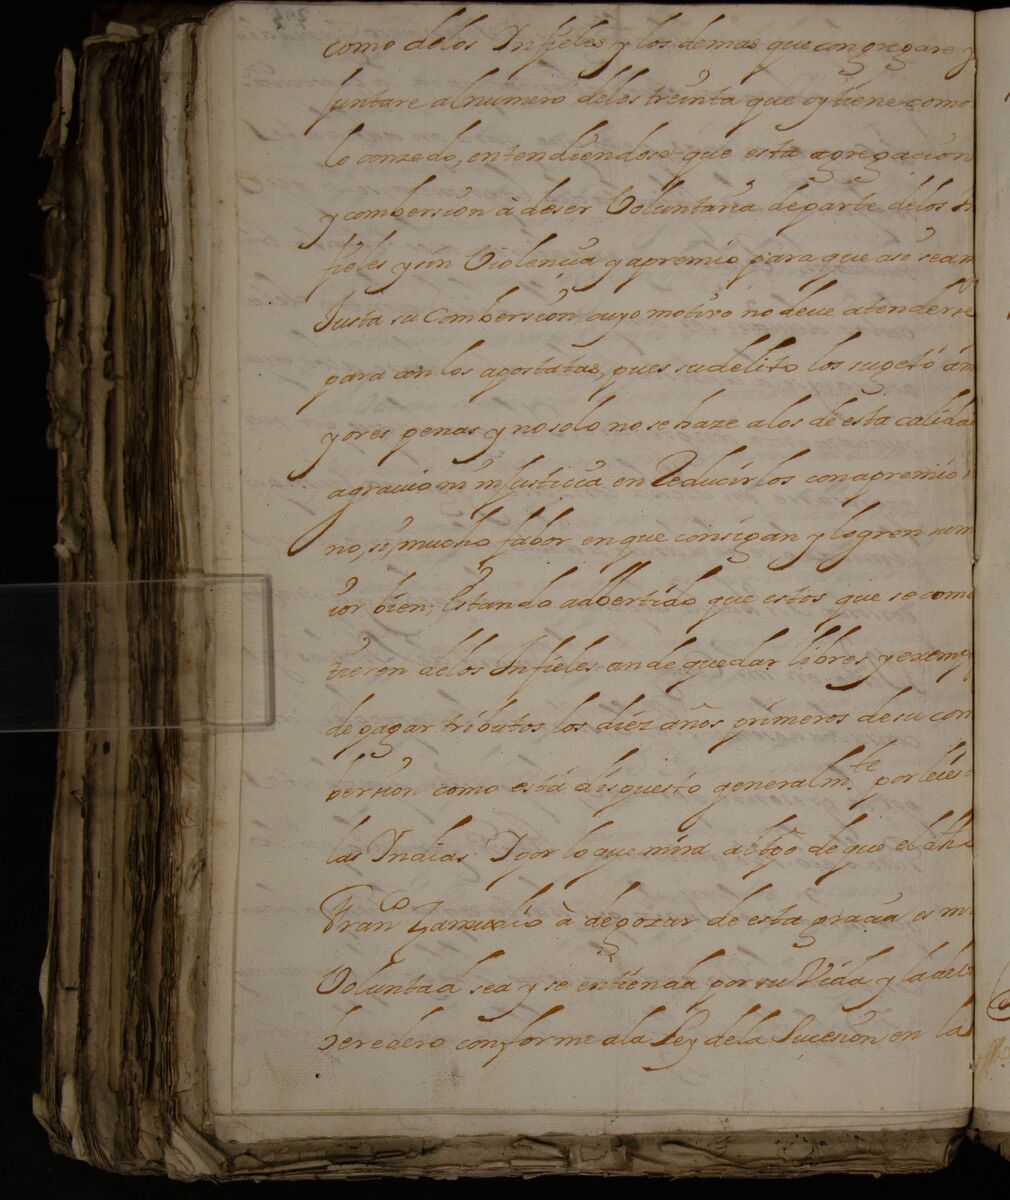 como de los Infieles y los demas que congregare y
juntare al numero de los treinta que oy tiene como
lo conzedo, entendiendose que esta agregacion
y combersion à de ser Voluntaria de parte de los
fieles y sin Violencia y apremio para que asi sea
Justa su Combersion cuyo motivo no deve atenderse
para con los apostatas, pues su delito los sugetó à
yores penas y no solo no se haze a los de esta calidad
agravio ni injusticia en Reducirlos con apremio
no, si, mucho fabor en que consigan y logren su
ior bien; Estando adbertido que estos que se
tieren de los Infieles an de quedar libres y
de pagar tributos los diez años primeros de su con
bersion como està dispuesto generalmte. por leies
las Indias. Y por lo que mira al tpõ de que el dho
Franco. Zamudio à de gozar de esta gracia es mi
Voluntad sea y se entienda por su Vida y la de
heredero conforme a la Ley de la Sucesion en la